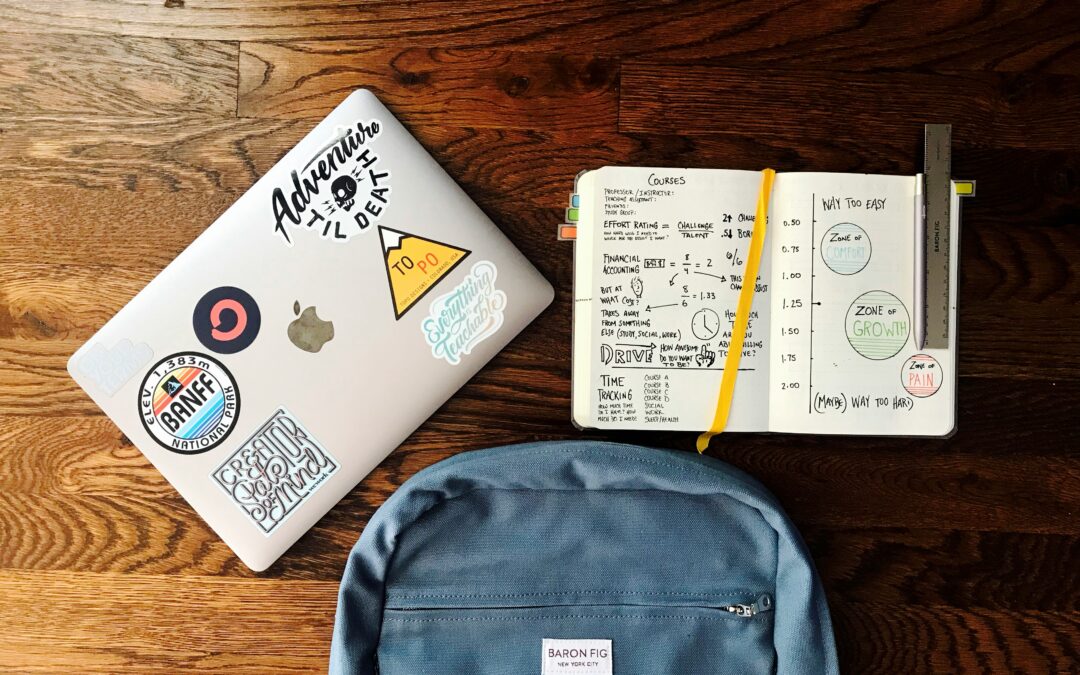 Adventure
'TIL DEATH
TO
PO
Everything
is
Teachable
ELEV. 1,383m
BANFF
NATIONAL PARK
CREATOR
State
of Mind
COURSES
PROFESSOR / INSTRUCTOR:
TEACHING ASSISTANT:
FRIENDS:
STUDY GROUP:
EFFORT RATING = CHALLENGE
TALENT
FINANCIAL
ACCOUNTING
8
4
= 2
BUT AT
WHAT COST?
8
6
= 1.33
TAKES AWAY
FROM SOMETHING
ELSE (STUDY, SOCIAL, WORK)
DRIVE
HOW AWESOME
DO YOU WANT
TO BE?
TIME
TRACKING
HOW MUCH TIME
DO I HAVE? HOW
MUCH DO I NEED?
COURSE A
COURSE B
COURSE C
COURSE D
SOCIAL
WORK
SLEEP/HEALTH
6/6
WAY TOO EASY
0.50
0.75
1.00
1.25
1.50
1.75
2.00
ZONE OF
COMFORT
ZONE OF
GROWTH
ZONE OF
PAIN
(MAYBE) WAY TOO HARD
BARON FIG
BARON FIG
NEW YORK CITY